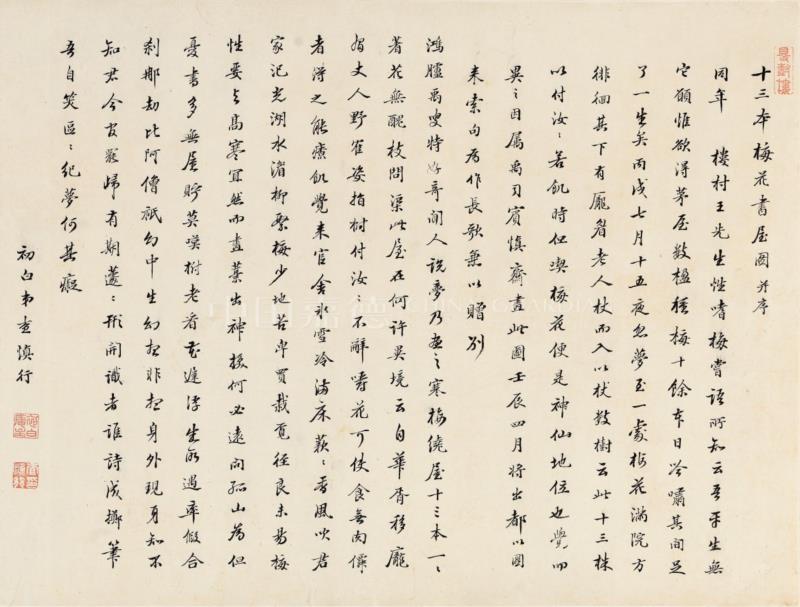 十三本梅花書屋圖 并序
同年 樓村王先生性嗜梅嘗語所知云吾平生無
它願惟欲得茅屋數楹種梅十餘本日冷嘯其間足
了一生矣丙戌七月十五夜忽夢至一處梅花滿院方
徘徊其下有龐眉老人杖而入以杖數樹云此十三株
以付汝〻若飢時但喫梅花便是神仙地位也覺而
異之因屬禹司賓慎齋畫此圖壬辰四月將出都以圖
來索句為作長歌兼以贈別
鴻臚禹叟特好奇聞人說夢乃畫之寒梅繞屋十三本一〻
著花無醜枝問渠此屋在何許異境云自華胥移龐
眉丈人野雀姿指樹付汝〻不辭嚼花可使食無肉僊
者得之能療飢覺來官舍冰雪冷滿床蔌〻香風吹君
家氾光湖水湄柳繫梅少地苦卑買栽覓徑良未易梅
性要與高寒宜然而畫葉出神橅何必遠問孤山為但
憂書多無屋貯莫嘆樹老看花遲浮生所遇率假合
剎那劫比阿僧祇幻中生幻想非想身外現身知不
知君今官罷歸有期蘧〻形開讖者誰詩成擲筆
吾自笑區〻紀夢何其癡
初白弟查慎行
中国嘉德 CHINA GUARDIAN